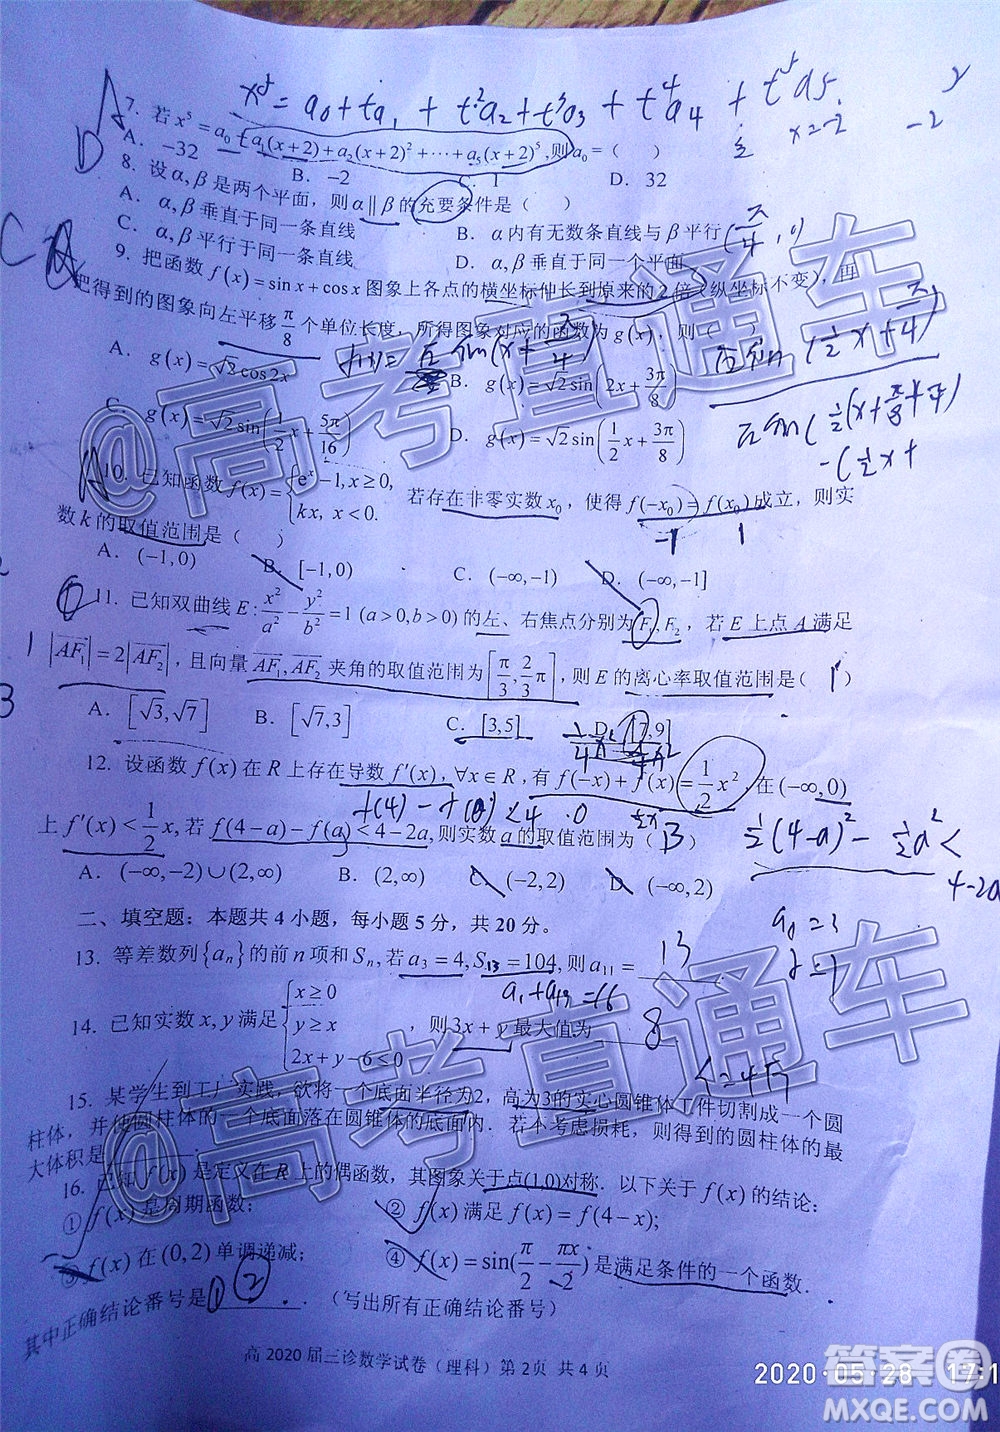 x⁵ = a₀ + ta₁ + t²a₂ + t³a₃ + t⁴a₄ + t⁵a₅
x=-2
-2
7. 若 x⁵ = a₀ + a₁(x+2) + a₂(x+2)² + ⋯ + a₅(x+2)⁵, 则 a₀ = ( )
A. -32 B. -2 C. 1 D. 32
8. 设 α, β 是两个平面, 则 α∥β 的充要条件是 ( )
A. α, β 垂直于同一条直线 B. α 内有无数条直线与 β 平行
C. α, β 平行于同一条直线 D. α, β 垂直于同一个平面
9. 把函数 f(x) = sin x + cos x 图象上各点的横坐标伸长到原来的 2 倍 (纵坐标不变), 再
把得到的图象向左平移 π/8 个单位长度, 所得图象对应的函数为 g(x), 则 ( )
A. g(x) = √2cos2x B. g(x) = √2sin(2x + 3π/8)
C. g(x) = √2sin(1/2 x + 5π/16) D. g(x) = √2sin(1/2 x + 3π/8)
10. 已知函数 f(x) = { eˣ - 1, x ≥ 0, kx, x < 0. 若存在非零实数 x₀, 使得 f(-x₀) = f(x₀) 成立, 则实
数 k 的取值范围是 ( )
A. (-1, 0) B. [-1, 0) C. (-∞, -1) D. (-∞, -1]
11. 已知双曲线 E: x²/a² - y²/b² = 1 (a>0, b>0) 的左、右焦点分别为 F₁, F₂, 若 E 上点 A 满足
|AF₁| = 2|AF₂|, 且向量 AF₁, AF₂ 夹角的取值范围为 [π/3, 2/3 π], 则 E 的离心率取值范围是 ( )
A. [√3, √7] B. [√7, 3] C. [3, 5] D. [7, 9]
12. 设函数 f(x) 在 R 上存在导数 f′(x), ∀x∈R, 有 f(-x) + f(x) = 1/2 x², 在 (-∞, 0)
f(4) - f(0) < 4 · 0
上 f′(x) < 1/2 x, 若 f(4-a) - f(a) < 4-2a, 则实数 a 的取值范围为 ( B )
½(4-a)² - ½a² <
4-2a
A. (-∞, -2)∪(2, ∞) B. (2, ∞) C. (-2, 2) D. (-∞, 2)
二、填空题: 本题共 4 小题, 每小题 5 分, 共 20 分.
13. 等差数列{aₙ}的前 n 项和 Sₙ, 若 a₃ = 4, S₁₃ = 104, 则 a₁₁ = 13
14. 已知实数 x, y 满足 { x ≥ 0 y ≥ x 2x + y - 6 < 0 , 则 3x + y 最大值为 8
15. 某学生到工厂实践, 欲将一个底面半径为2, 高为3的实心圆锥体工件切割成一个圆
柱体, 并使圆柱体的一个底面落在圆锥体的底面内. 若不考虑损耗, 则得到的圆柱体的最
大体积是
16. 已知 f(x) 是定义在 R 上的偶函数, 其图象关于点(1,0)对称. 以下关于 f(x) 的结论:
① f(x) 是周期函数; ② f(x) 满足 f(x) = f(4-x);
③ f(x) 在 (0, 2) 单调递减; ④ f(x) = sin(π/2 - πx/2) 是满足条件的一个函数.
其中正确结论番号是 ①② . (写出所有正确结论番号)
高 2020 届三诊数学试卷 (理科) 第 2页 共 4 页
@高考直通车
@高考直通车
2020-05-28 17:1
答案圈
MXQE.COM